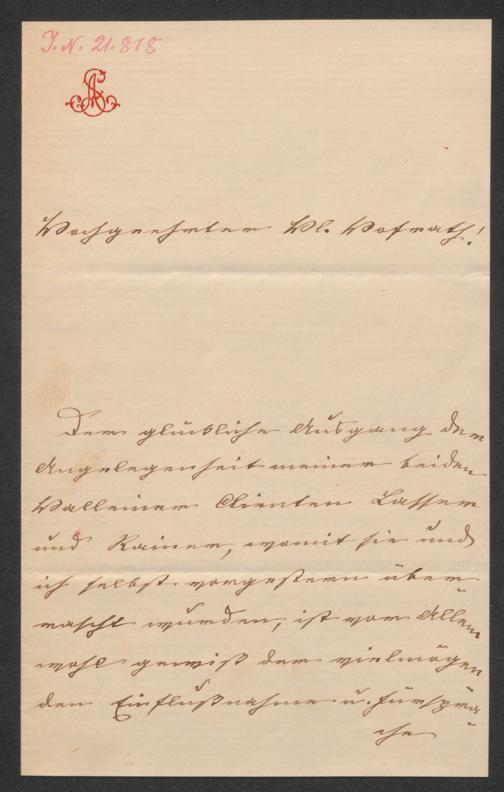 J. N. 21.818
Hochgeehrter Hl. Hofrath!
Der glückliche Ausgang der
Angelegenheit meiner beiden
Halleiner Clienten Lasser
und Rainer, womit sie und
ich selbst vorgestern über-
rascht wurden, ist vor Allem
wohl gewiß der vielmögen
den Einflußnahme u. Fürsprä
che